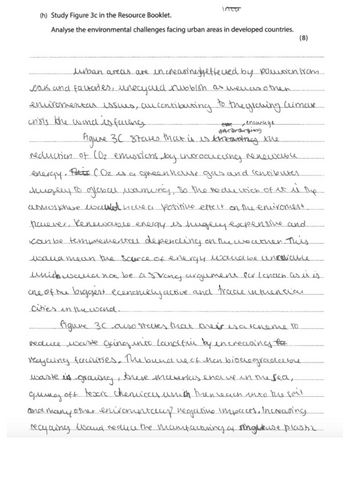 (h) Study Figure 3c in the Resource Booklet.
Analyse the environmental challenges facing urban areas in developed countries.
(8)
Urban areas are increasingly effected by pollution from
cars and factories, unrecycled rubbish as well as other
enviromental issues, all contributing to the growing climate
crisis the world is facing.
encourage
Figure 3C states that it is
reduction of CO2 emissions by introducing renewable
energy. CO2 is a greenhouse gas and contributes
hugely to global warming. So the reduction of it in the
atmosphere would have a positive effect on the enviroment
however. Renewable energy is hugely expensive and
can be tempremental depending on the weather. This
would mean the source of energy would be unreliable
which would not be a strong argument for London as it is
one of the biggest economically active and trade
cities in the world.
Figure 3C also states that there is a scheme to
reduce waste going into landfill by increasing
recycling facilities. The build up of non biodegradable
waste is growing, these materials end up in the sea,
giving off toxic chemicals which then leach into the soil
and many other negative impacts. Increasing
recycling would reduce the manufacturing of single use plastic